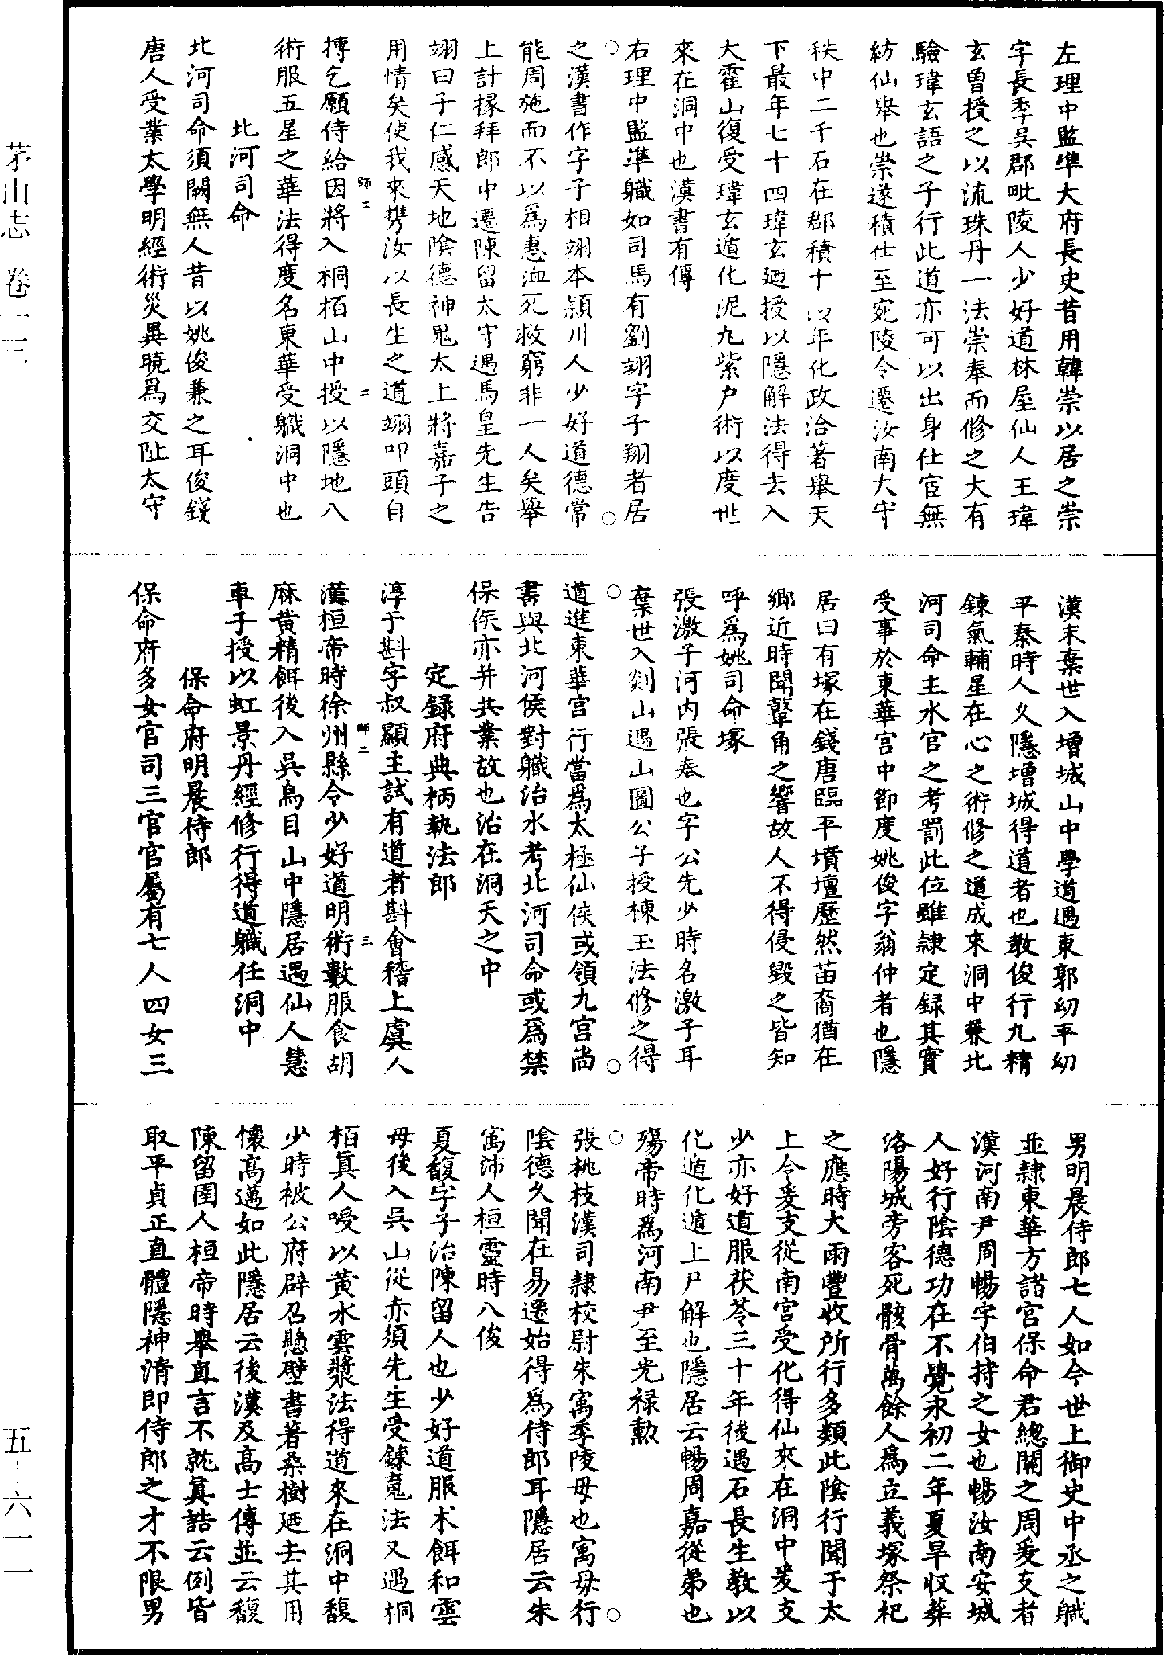 左理中監準大府長史昔用韓崇以居之崇
字長季吳郡毗陵人少好道林屋仙人王瑋
玄曾授之以流珠丹一法崇奉而修之大有
驗瑋玄語之子行此道亦可以出身仕宦無
紡仙舉也崇遂積仕至宛陵令遷汝南大守
秩中二千石在郡積十以年化政洽著舉天
下最年七十四瑋玄迺授以隱解法得去入
大霍山復受瑋玄遁化泥九紫户術以度世
來在洞中也漢書有傳
右理中監準職如司馬有劉翊字子翔者居
之漢書作字子相翊本潁川人少好道德常
能周施而不以爲惠洫死救窮非一人矣舉
上計掾拜郎中遷陳留太守遇馬皇先生告
翊曰子仁感天地陰德神鬼太上將嘉子之
用情矣使我來携汝以長生之道翊叩頭自
搏乞願侍給因將入桐栢山中授以隱地八
術服五星之華法得度名東華受職洞中也
北河司命
北河司命須闕無人昔以姚俊兼之耳俊錢
唐人受業太學明經術災異曉爲交阯太守
漢末棄世入增城山中學道遇東郭幼平幼
平秦時人久隱增城得道者也教俊行九精
鍊氣輔星在心之術修之道成來洞中兼北
河司命主水官之考罰此位雖隷定録其實
受事於東華宫中節度姚俊字翁仲者也隱
居曰有塚在錢唐臨平墳壇歷然苗裔猶在
鄉近時聞鼙角之響故人不得侵毀之皆知
呼爲姚司命塚
張激子河内張奉也字公先少時名激子耳
棄世入剡山遇山圖公子授棟玉法修之得
道進東華宫行當爲太極仙侯或領九宫尚
書與北河侯對職治水考北河司命或爲禁
保侯亦并共業故也治在洞天之中
定録府典柄執法郎
淳于斟字叔顯主試有道者斟會稽上虞人
漢桓帝時徐州縣令少好道明術數服食胡
麻黄精餌後入吳烏目山中隱居遇仙人慧
車子授以虹景丹經修行得道職任洞中
保命府明晨侍郎
保命府多女官司三官官屬有七人四女三
男明晨侍郎七人如今世上御史中丞之職
並隷東華方諸宫保命君總關之周爰支者
漢河南尹周暢字伯持之女也暢汝南安城
人好行陰德功在不覺永初二年夏旱收葬
洛陽城旁客死骸骨萬餘人爲立義塚祭祀
之應時大雨豐收所行多類此陰行聞于太
上令爰支從南宫受化得仙來在洞中爰支
少亦好道服茯苓三十年後遇石長生教以
化遁化遁上尸解也隱居云暢周嘉從弟也
殤帝時爲河南尹至光禄勲
張桃枝漢司隷校尉朱寓季陵母也寓母行
陰德久聞在易遷始得爲侍郎耳隱居云朱
寓沛人桓靈時八俊
夏馥字子治陳留人也少好道服术餌和雲
母後入吳山從赤須先生受鍊䰟法又遇桐
栢真人噯以黄水雲漿法得道來在洞中馥
少時被公府辟召懸壁書著桑樹迺去其用
懷高邁如此隱居云後漢及高士傳並云馥
陳留圉人桓帝時舉直言不就真誥云例皆
取平貞正直體隱神清即侍郎之才不限男
師二
二
師二
三
茅山志 卷一三
五-六一一